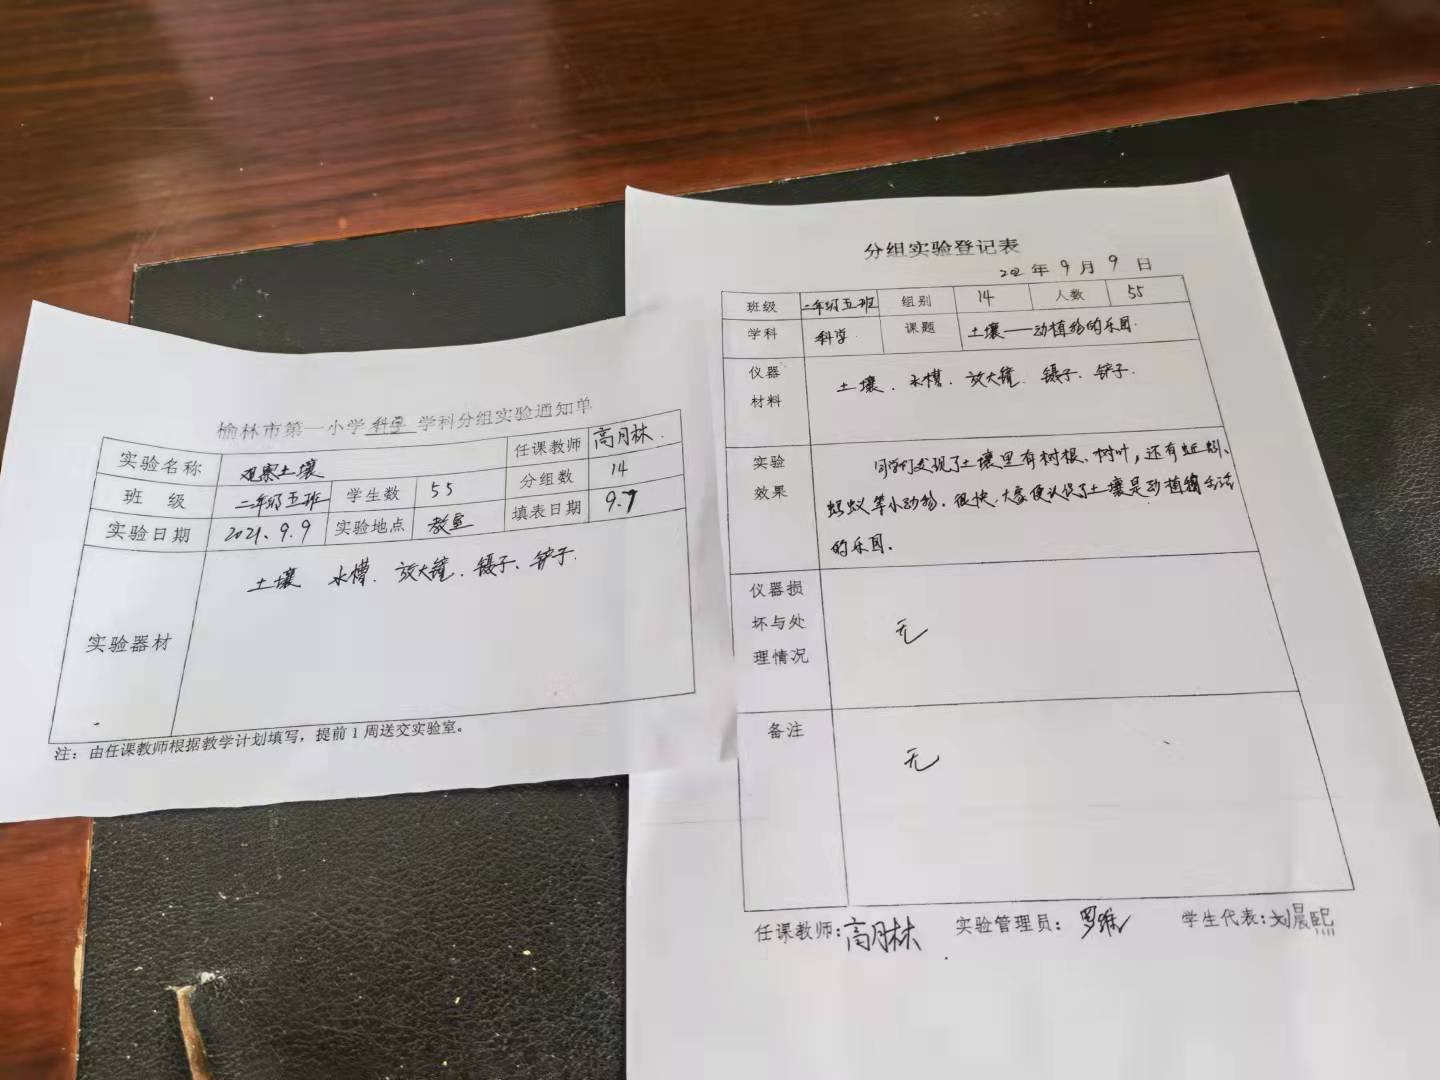 榆林市第一小学科学学科分组实验通知单
实验名称 观察土壤 任课教师 高月林
班 级 二年级五班 学生数 55 分组数 14
实验日期 2021.9.9 实验地点 教室 填表日期 9.7
实验器材 土壤 水槽、放大镜、镊子、铲子.
注：由任课教师根据教学计划填写，提前1周送交实验室。
分组实验登记表
年 9 月 9 日
班级 二年级五班 组别 14 人数 55
学科 科学 课题 土壤——动植物的乐园.
仪器
材料
土壤、水槽、放大镜、镊子、铲子.
实验
效果
同学们发现了土壤里有树根、树叶，还有蚯蚓、
蚂蚁等小动物.很快,大家便认识了土壤是动植物生活
的乐园.
仪器损
坏与处
理情况
无
备注
无
任课教师：高月林 实验管理员： 学生代表：刘晨熙